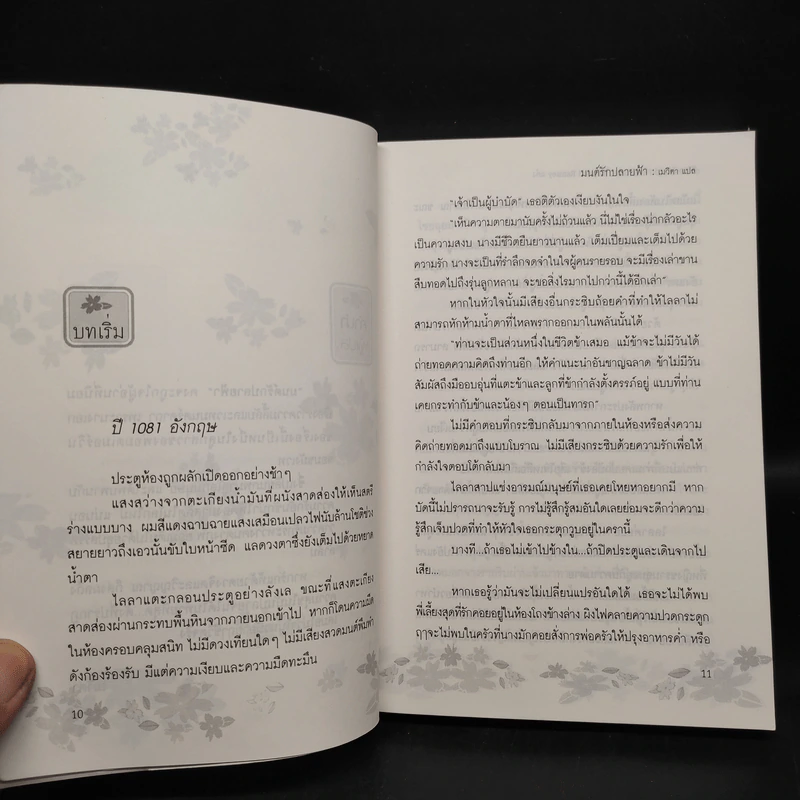 บทเริ่ม
ปี 1081 อังกฤษ
ประตูห้องถูกผลักเปิดออกอย่างช้าๆ
แสงสว่างจากตะเกียงน้ำมันที่ผนังสาดส่องให้เห็นสตรี
ร่างแบบบาง ผมสีแดงฉาบฉายแสงเสมือนเปลวไฟนับล้านโชติช่วง
สยายยาวถึงเอวนั้นขับใบหน้าซีด แลดวงตาซึ่งยังเต็มไปด้วยหยาด
น้ำตา
ไลลาแตะกลอนประตูอย่างลังเล ขณะที่แสงตะเกียง
สาดส่องผ่านกระทบพื้นหินจากภายนอกเข้าไป หากก็โดนความมืด
ในห้องครอบคลุมสนิท ไม่มีดวงเทียนใดๆ ไม่มีเสียงสวดมนต์พึมพำ
ดังก้องร้องรับ มีแต่ความเงียบและความมืดทะมึน
10
มนต์รักปลายฟ้า : เมริศา แปล
"เจ้าเป็นผู้บำบัด" เธอติตัวเองเงียบงันในใจ
"เห็นความตายมานับครั้งไม่ถ้วนแล้ว นี่ไม่ใช่เรื่องน่ากลัวอะไร
เป็นความสงบ นางมีชีวิตยืนยาวนานแล้ว เต็มเปี่ยมและเต็มไปด้วย
ความรัก นางจะเป็นที่รำลึกจดจำในใจผู้คนรายรอบ จะมีเรื่องเล่าขาน
สืบทอดไปถึงรุ่นลูกหลาน จะขอสิ่งไรมากไปกว่านี้ได้อีกเล่า"
หากในหัวใจนั้นมีเสียงอื่นกระซิบถ้อยคำที่ทำให้ไลลาไม่
สามารถหักห้ามน้ำตาที่ไหลพรากออกมาในพลันนั้นได้
"ท่านจะเป็นส่วนหนึ่งในชีวิตข้าเสมอ แม้ข้าจะไม่มีวันได้
ถ่ายทอดความคิดถึงท่านอีก ให้คำแนะนำอันชาญฉลาด ข้าไม่มีวัน
สัมผัสถึงมืออบอุ่นที่แตะข้าและลูกที่ข้ากำลังตั้งครรภ์อยู่ แบบที่ท่าน
เคยกระทำกับข้าและน้องๆ ตอนเป็นทารก"
ไม่มีคำตอบที่กระซิบกลับมาจากภายในห้องหรือส่งความ
คิดถ่ายทอดมาถึงแบบโบราณ ไม่มีเสียงกระซิบด้วยความรักเพื่อให้
กำลังใจตอบโต้กลับมา
ไลลาสาปแช่งอารมณ์มนุษย์ที่เธอเคยโหยหาอยากมี หาก
บัดนี้ไม่ปรารถนาจะรับรู้ การไม่รู้สึกรู้สมอันใดเลยย่อมจะดีกว่าความ
รู้สึกเจ็บปวดที่ทำให้หัวใจเธอกระตุกวูบอยู่ในครานี้
บางที...ถ้าเธอไม่เข้าไปข้างใน...ถ้าปิดประตูและเดินจากไป
เสีย...
หากเธอรู้ว่ามันจะไม่เปลี่ยนแปรอันใดได้ เธอจะไม่ได้พบ
พี่เลี้ยงสุดที่รักคอยอยู่ในห้องโถงข้างล่าง ผิงไฟคลายความปวดกระดูก
ฤๅจะไม่พบในครัวที่นางมักคอยสั่งการพ่อครัวให้ปรุงอาหารค่ำ หรือ
11